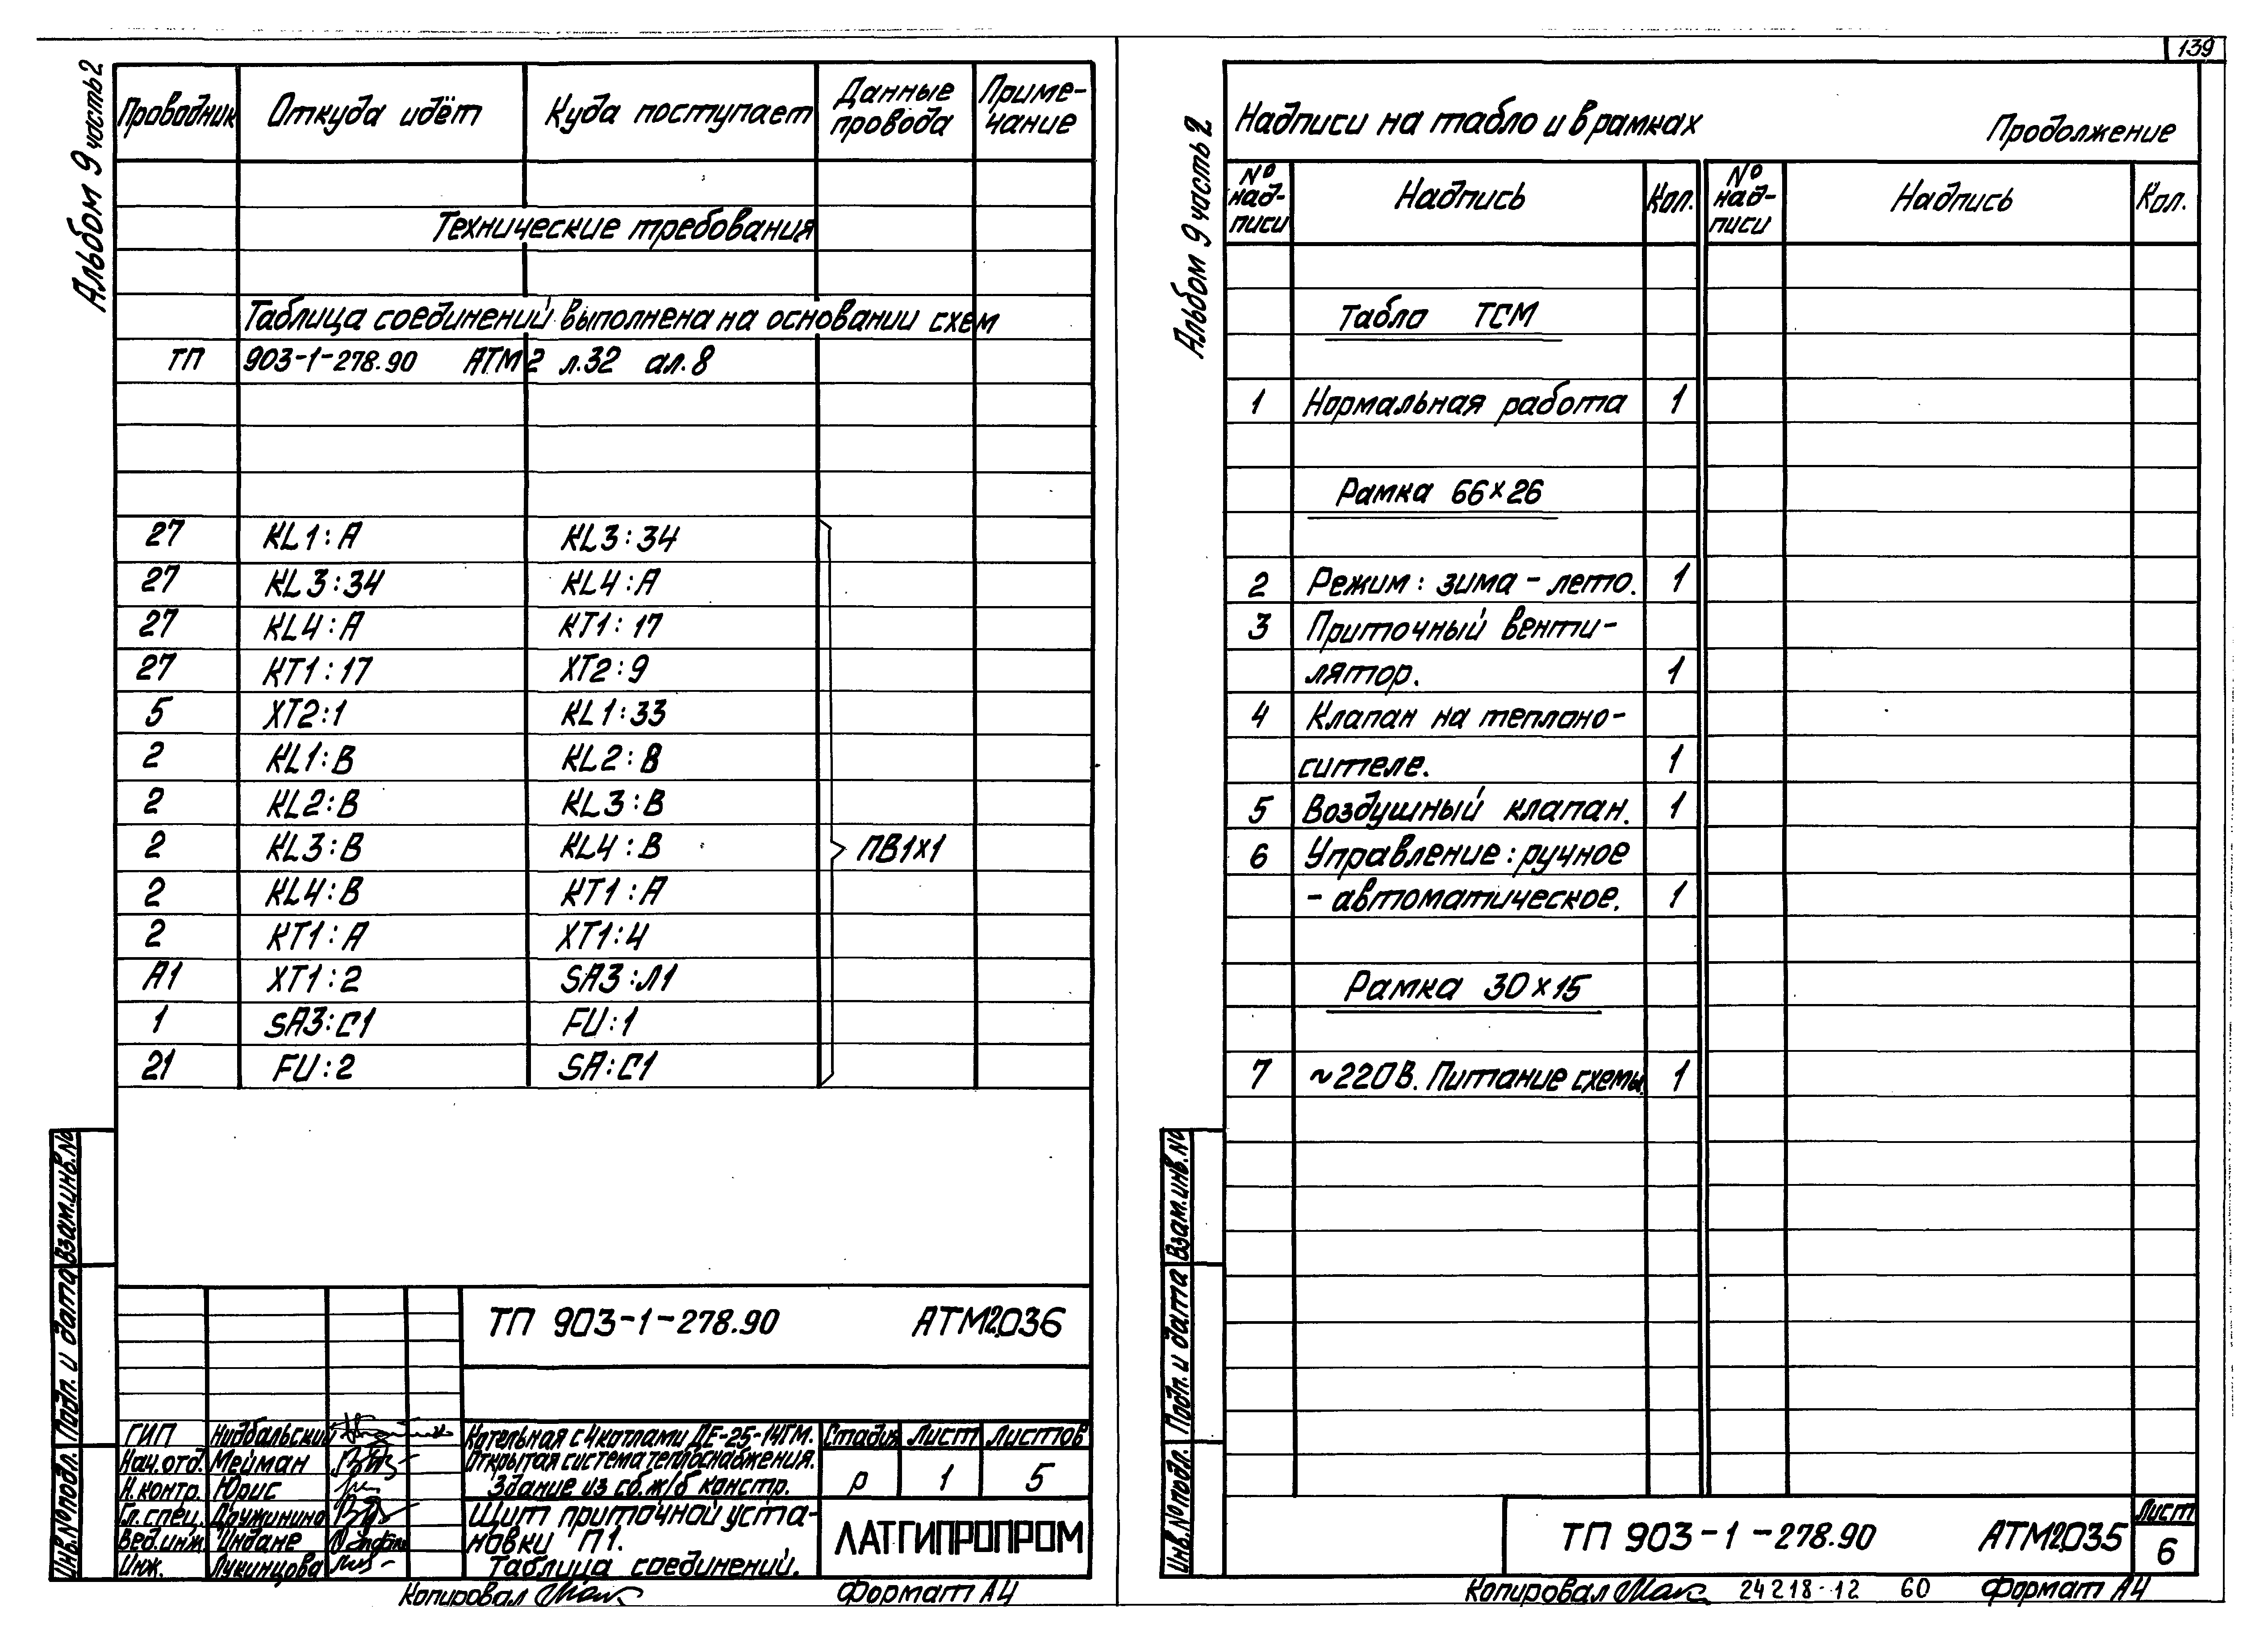 Альбом 9 часть 2
Проводник Откуда идёт Куда поступает Данные провода Приме-чание
Технические требования
Таблица соединений выполнена на основании схем
ТП 903-1-278.90 АТМ2 л.32 ал.8
27 KL1:A KL3:34
27 KL3:34 KL4:A
27 KL4:A KT1:17
27 KT1:17 XT2:9
5 XT2:1 KL1:33
2 KL1:B KL2:B
2 KL2:B KL3:B
2 KL3:B KL4:B ПВ1х1
2 KL4:B KT1:A
2 KT1:A XT1:4
A1 XT1:2 SA3:Л1
1 SA3:C1 FU:1
21 FU:2 SA:C1
Взам.инв.№
Подп. и дата
Инв.№ подл.
ТП 903-1-278.90 АТМ2.036
ГИП Нидбальский
Нач.отд. Мейман
Н.контр. Юрис
Гл.спец. Дружинина
Вед.инж. Индане
Инж. Лукинцова
Котельная с 4 котлами ДЕ-25-14ГМ.
Открытая система теплоснабжения.
Здание из сб.ж/б констр.
Стадия Лист Листов
р 1 5
Щит приточной уста-
новки П1.
Таблица соединений.
ЛАТГИПРОПРОМ
Копировал Формат А4
139
Альбом 9 часть 2
Надписи на табло и в рамках Продолжение
№ над-писи Надпись Кол. № над-писи Надпись Кол.
Табло ТСМ
1 Нормальная работа 1
Рамка 66×26
2 Режим: зима - лето. 1
3 Приточный венти-
лятор. 1
4 Клапан на теплоно-
сителе. 1
5 Воздушный клапан. 1
6 Управление: ручное
- автоматическое. 1
Рамка 30×15
7 ~220В. Питание схемы. 1
Взам.инв.№
Подп. и дата
Инв.№ подл.
ТП 903-1-278.90 АТМ2.035
Лист
6
Копировал 24218-12 60 Формат А4